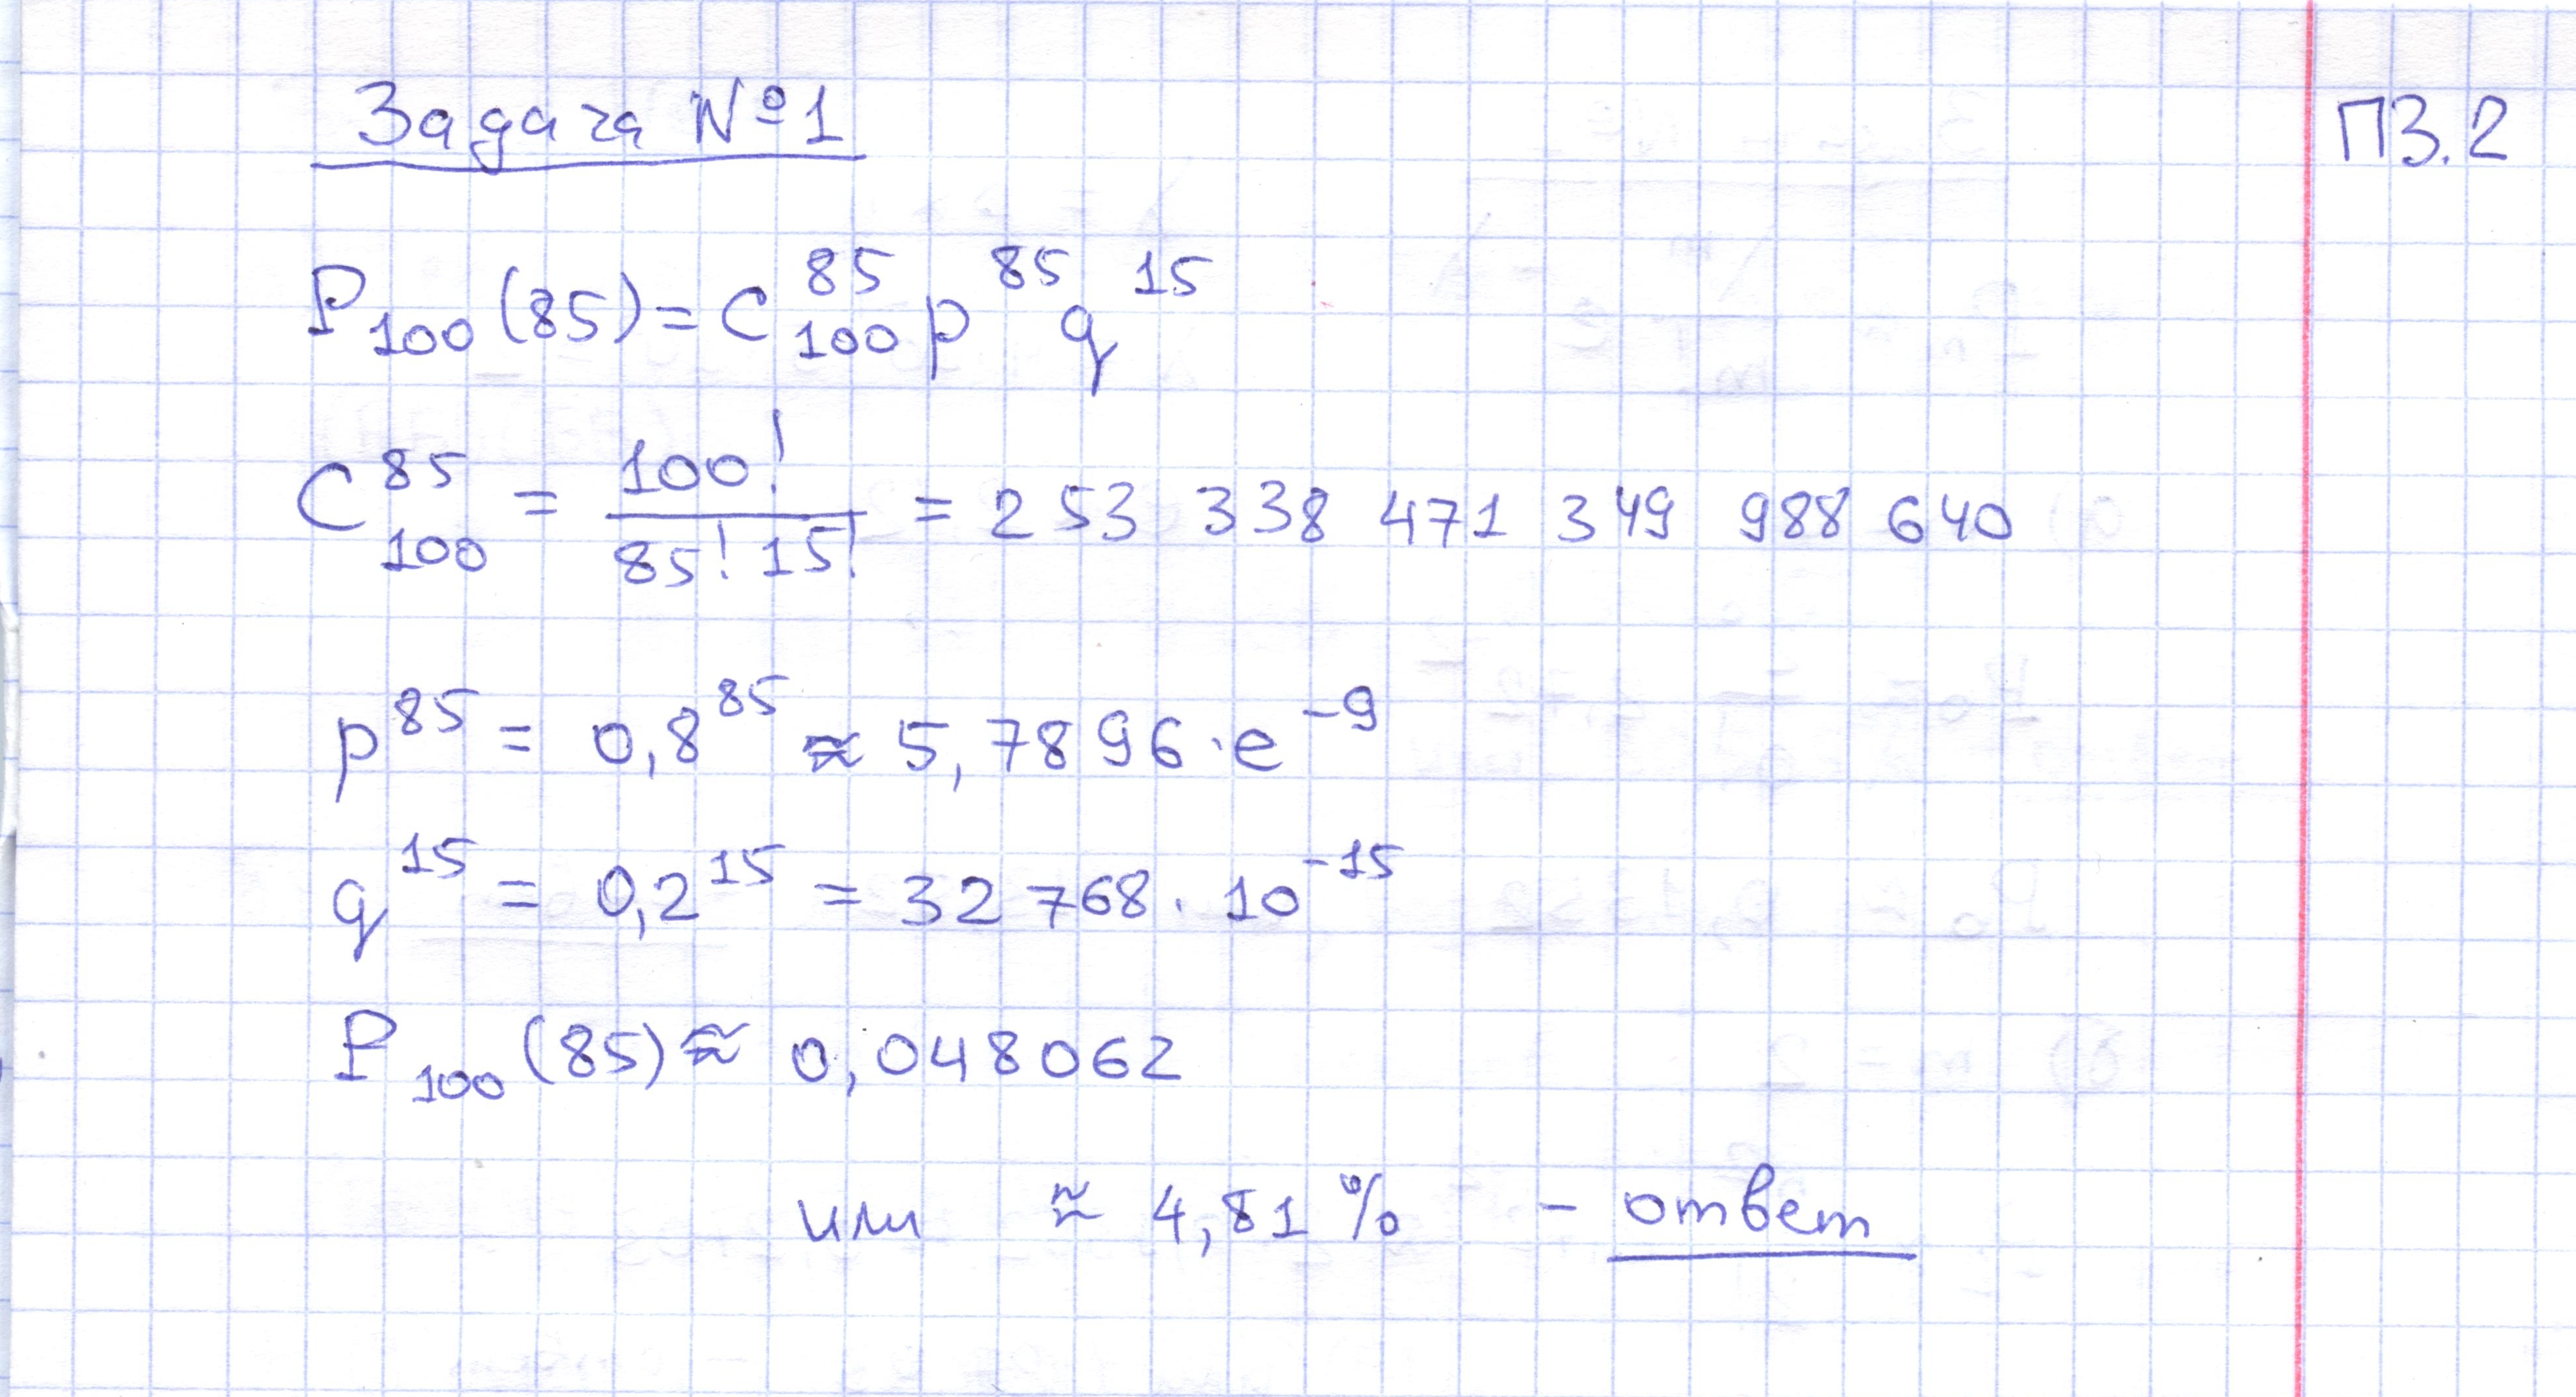 Задача №1
ПЗ.2
P₁₀₀(85) = C₁₀₀⁸⁵ p⁸⁵ q¹⁵
C₁₀₀⁸⁵ = 100! / 85! 15! = 253 338 471 349 988 640
p⁸⁵ = 0,8⁸⁵ ≈ 5,7896 · e⁻⁹
q¹⁵ = 0,2¹⁵ = 32 768 · 10⁻¹⁵
P₁₀₀(85) ≈ 0,048062
или ≈ 4,81 % - ответ